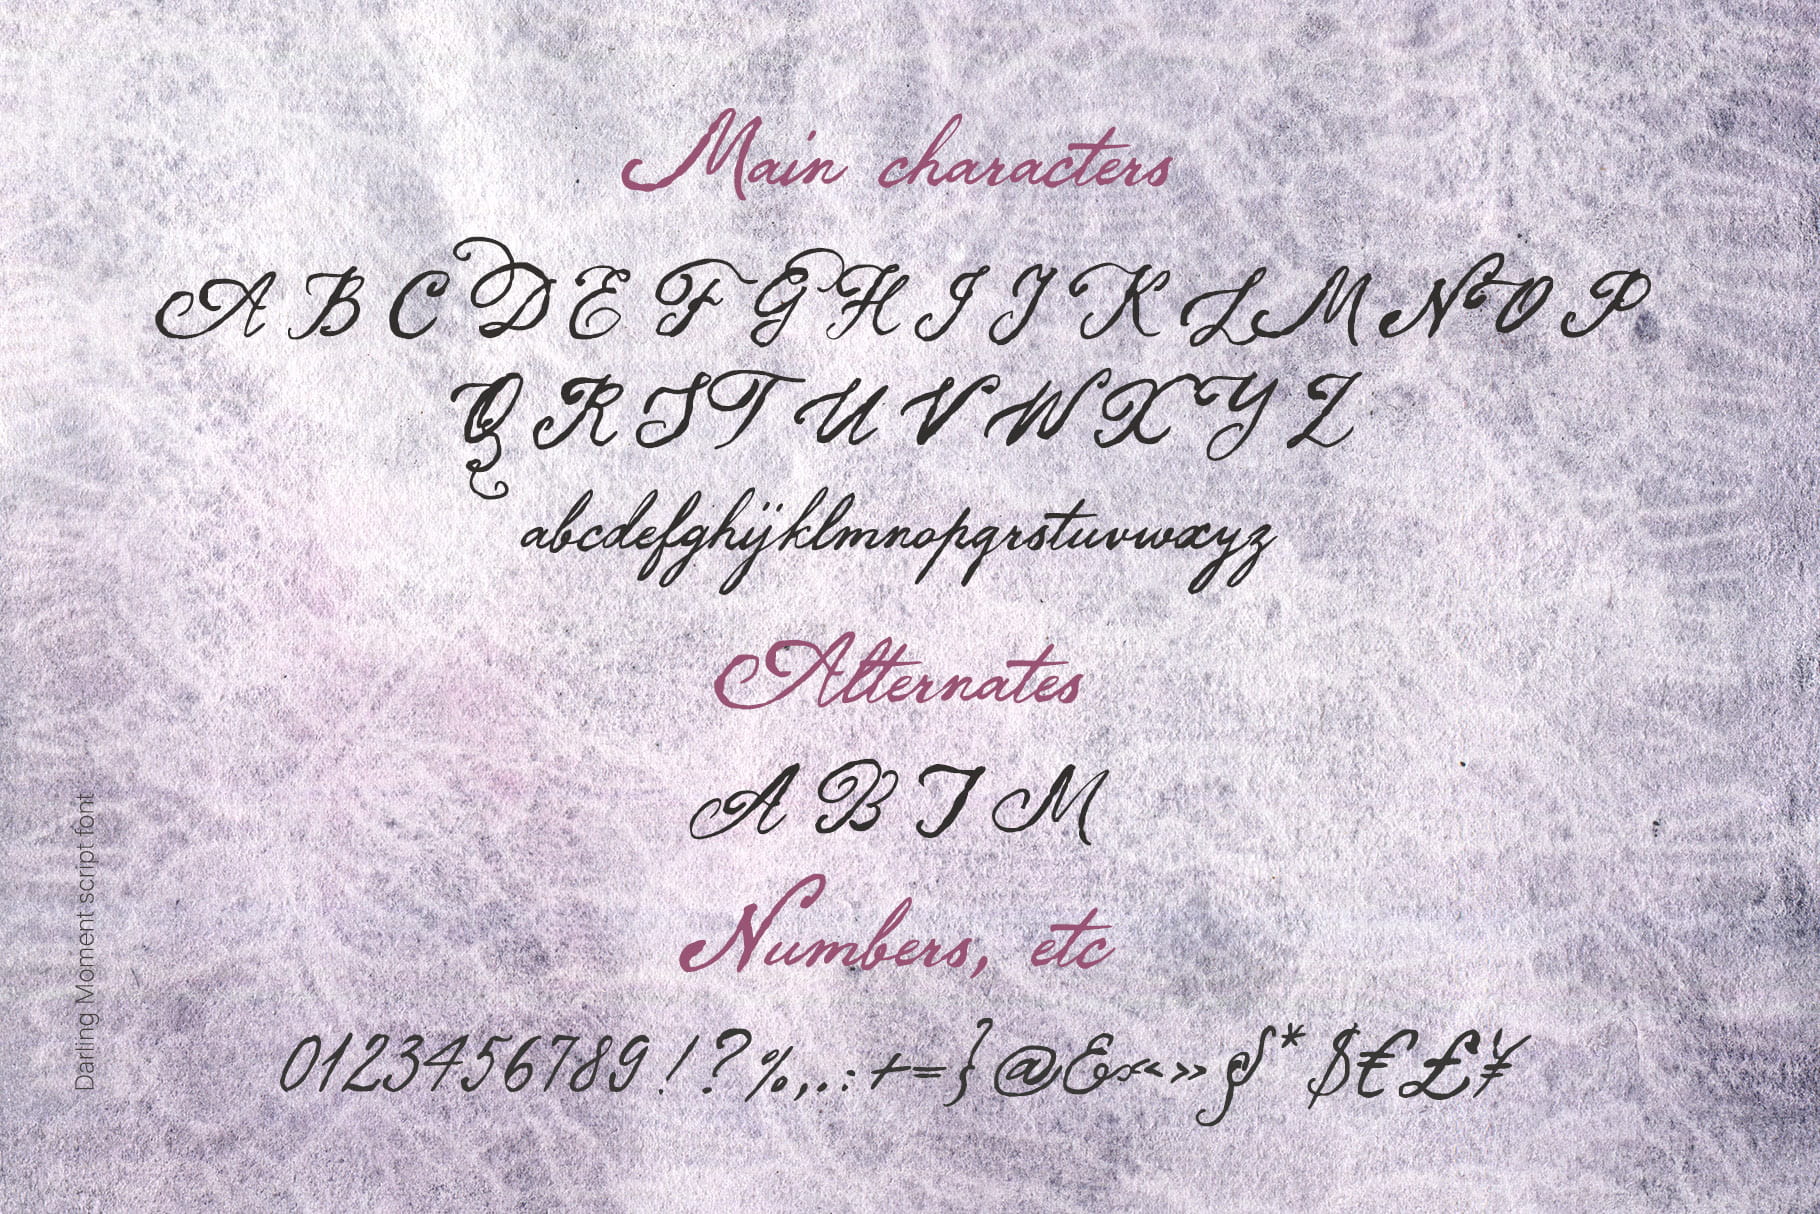 Main characters
A B C D E F G H I J K L M N O P
Q R S T U V W X Y Z
abcdefghijklmnopqrstuvwxyz
Alternates
A B T M
Numbers, etc
0123456789 ! ? % , . : + = } @ & « » § * $ € £ ¥
Darling Moment script font